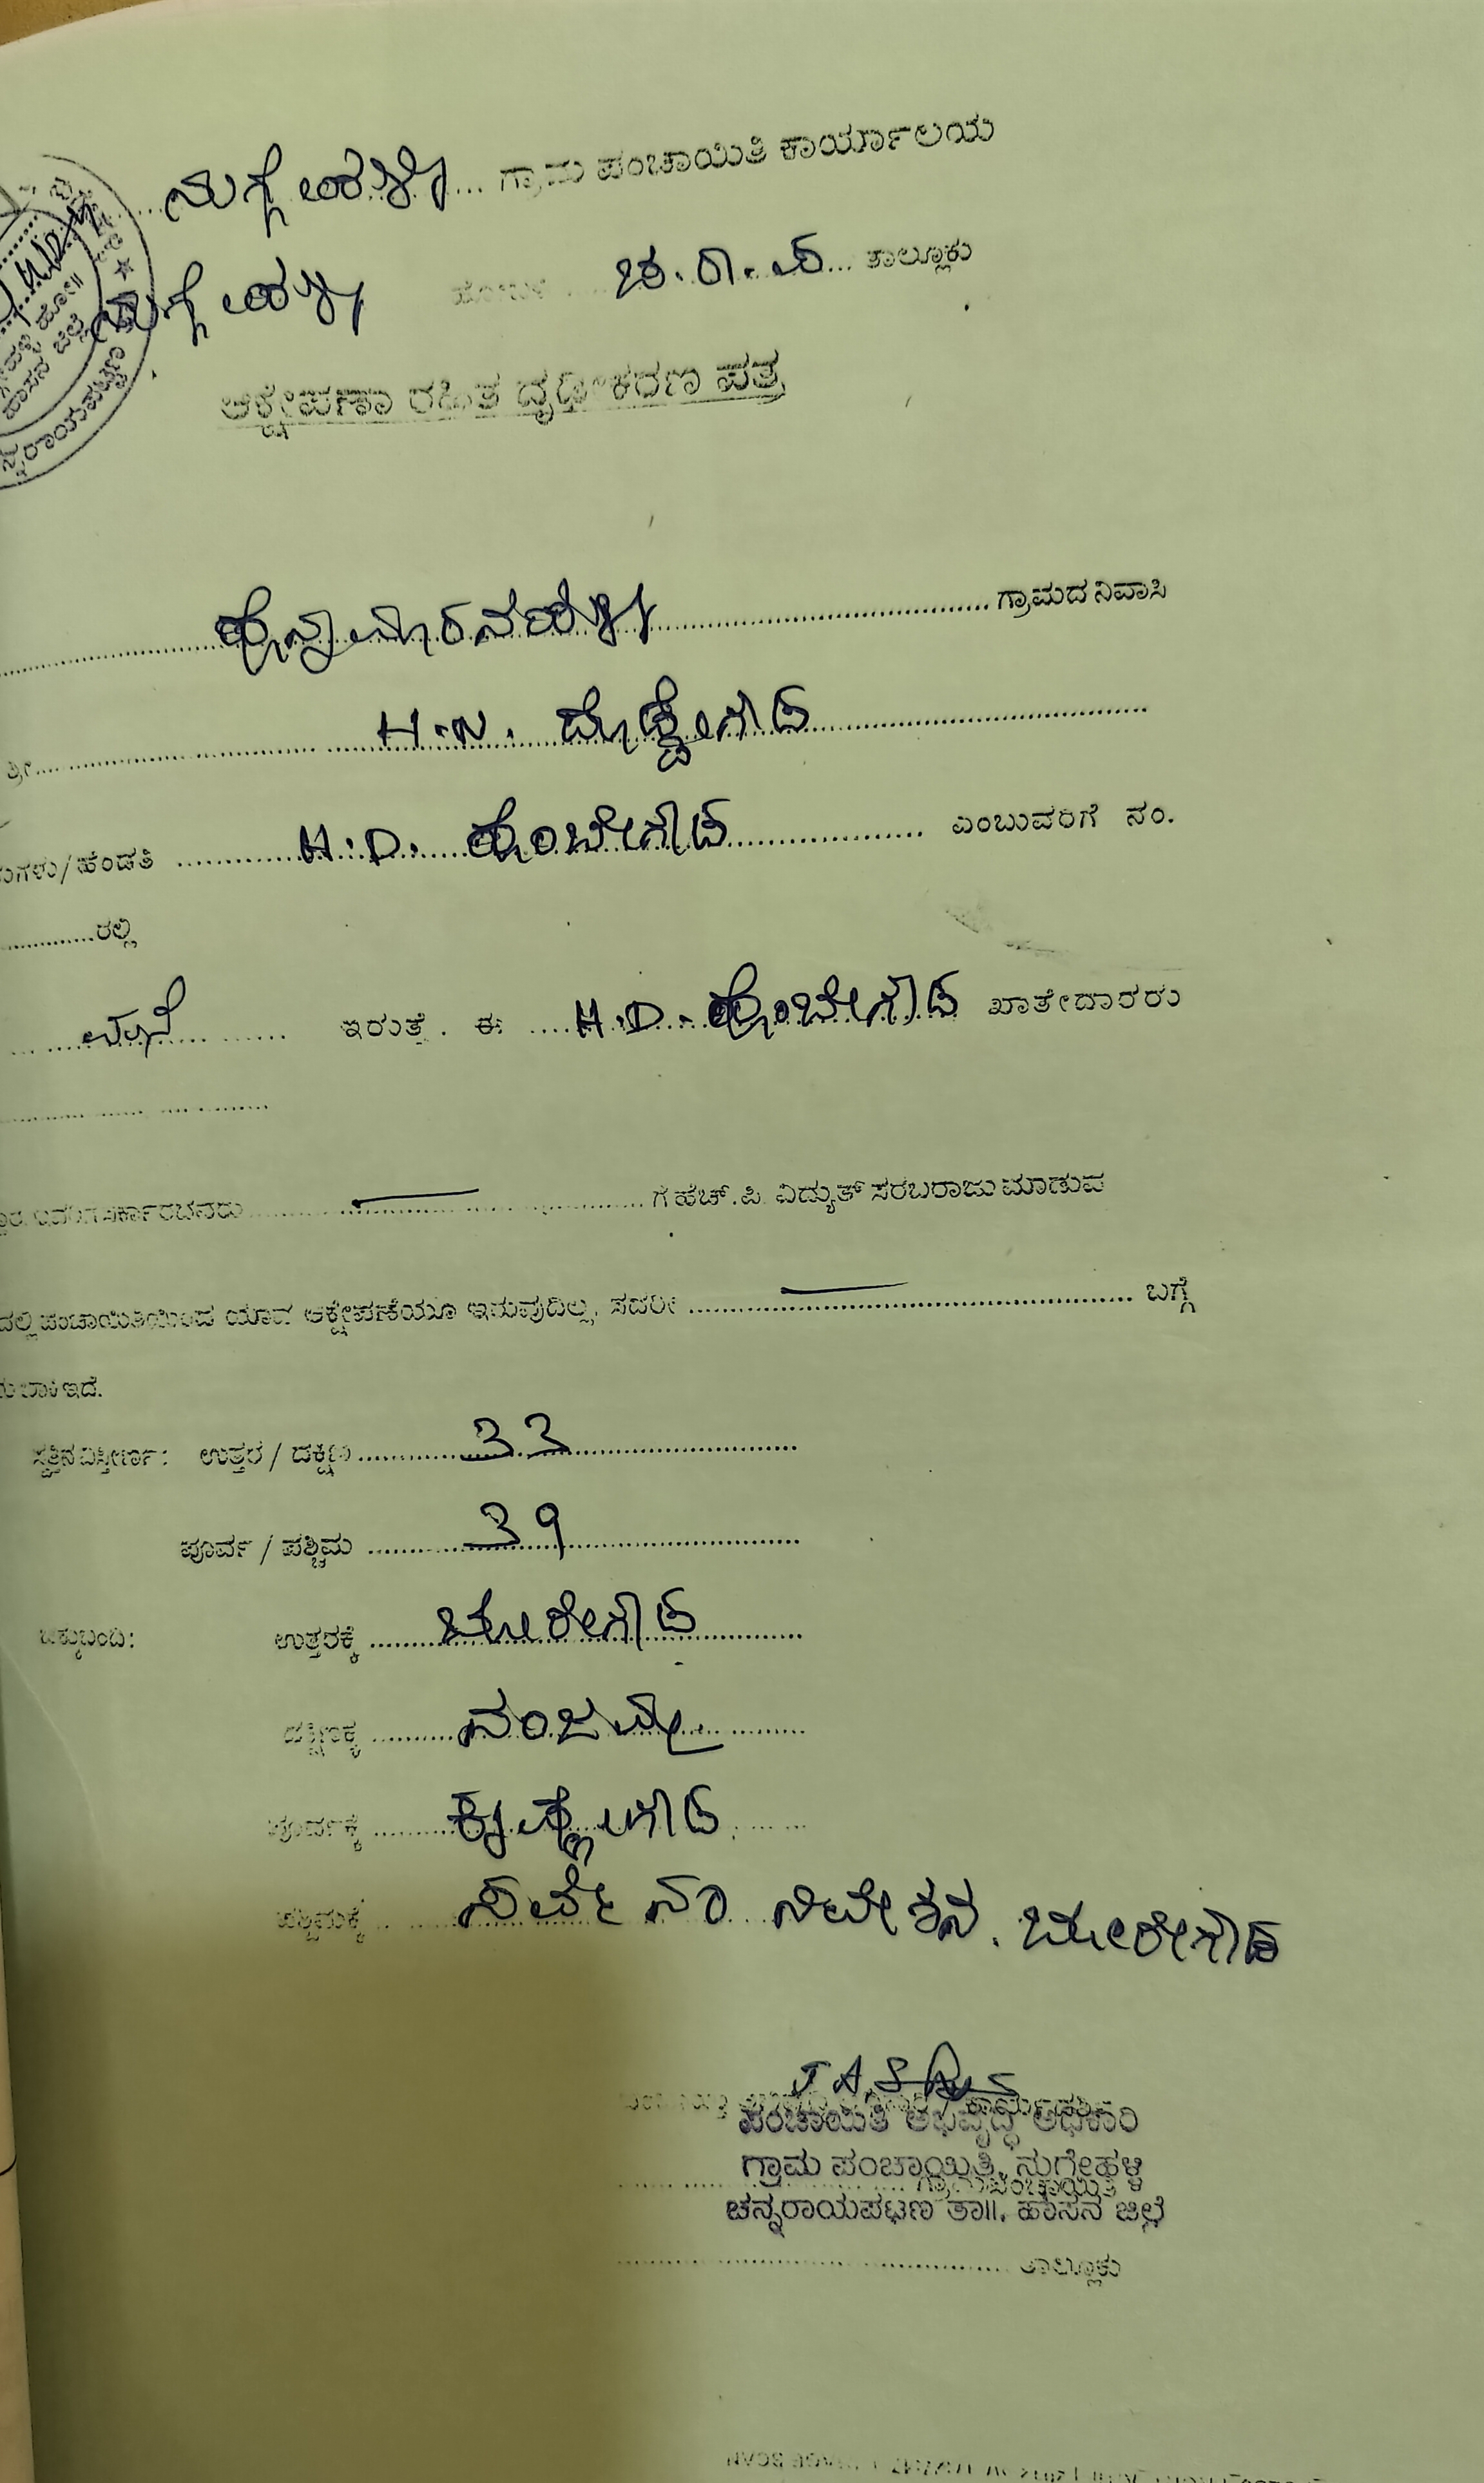 ನುಗ್ಗೇಹಳ್ಳಿ ಗ್ರಾಮ ಪಂಚಾಯಿತಿ ಕಾರ್ಯಾಲಯ
ನುಗ್ಗೇಹಳ್ಳಿ ಚ.ರಾ.ಪ ತಾಲ್ಲೂಕು
ಆಕ್ಷೇಪಣಾ ರಹಿತ ದೃಢೀಕರಣ ಪತ್ರ
ಹೊನ್ನಮಾರನಹಳ್ಳಿ ಗ್ರಾಮದ ನಿವಾಸಿ
ಶ್ರೀ H.N. ದೊಡ್ಡೇಗೌಡ
/ಹೆಂಡತಿ H.D. ಹೊಂಬೇಗೌಡ ಎಂಬುವರಿಗೆ ನಂ.
ರಲ್ಲಿ
ಮನೆ ಇರುತ್ತೆ. ಈ H.D. ಹೊಂಬೇಗೌಡ ಖಾತೇದಾರರು
ಗೆ ಹೆಚ್.ಪಿ. ವಿದ್ಯುತ್ ಸರಬರಾಜು ಮಾಡುವ
ಪಂಚಾಯಿತಿಯಿಂದ ಯಾವ ಆಕ್ಷೇಪಣೆಯೂ ಇರುವುದಿಲ್ಲ, ಸದರೀ ಬಗ್ಗೆ
ಬಾಕಿ ಇದೆ.
ಸ್ವತ್ತಿನ ವಿಸ್ತೀರ್ಣ: ಉತ್ತರ / ದಕ್ಷಿಣ 33
ಪೂರ್ವ / ಪಶ್ಚಿಮ 39
ಚಕ್ಕುಬಂದಿ: ಉತ್ತರಕ್ಕೆ ಚೋರೇಗೌಡ
ದಕ್ಷಿಣಕ್ಕೆ ನಂಜಪ್ಪ
ಪೂರ್ವಕ್ಕೆ ಕೃಷ್ಣೇಗೌಡ
ಪಶ್ಚಿಮಕ್ಕೆ ಸರ್ವೇ ನಂ ನಿವೇಶನ. ಚೋರೇಗೌಡ
ಪಂಚಾಯಿತಿ ಅಭಿವೃದ್ಧಿ ಅಧಿಕಾರಿ
ಗ್ರಾಮ ಪಂಚಾಯಿತ್ರಿ, ನುಗ್ಗೇಹಳ್ಳಿ
ಗ್ರಾಮಪಂಚಾಯಿತಿ
ಚನ್ನರಾಯಪಟ್ಟಣ ತಾ॥. ಹಾಸನ ಜಿಲ್ಲೆ
ತಾಲ್ಲೂಕು